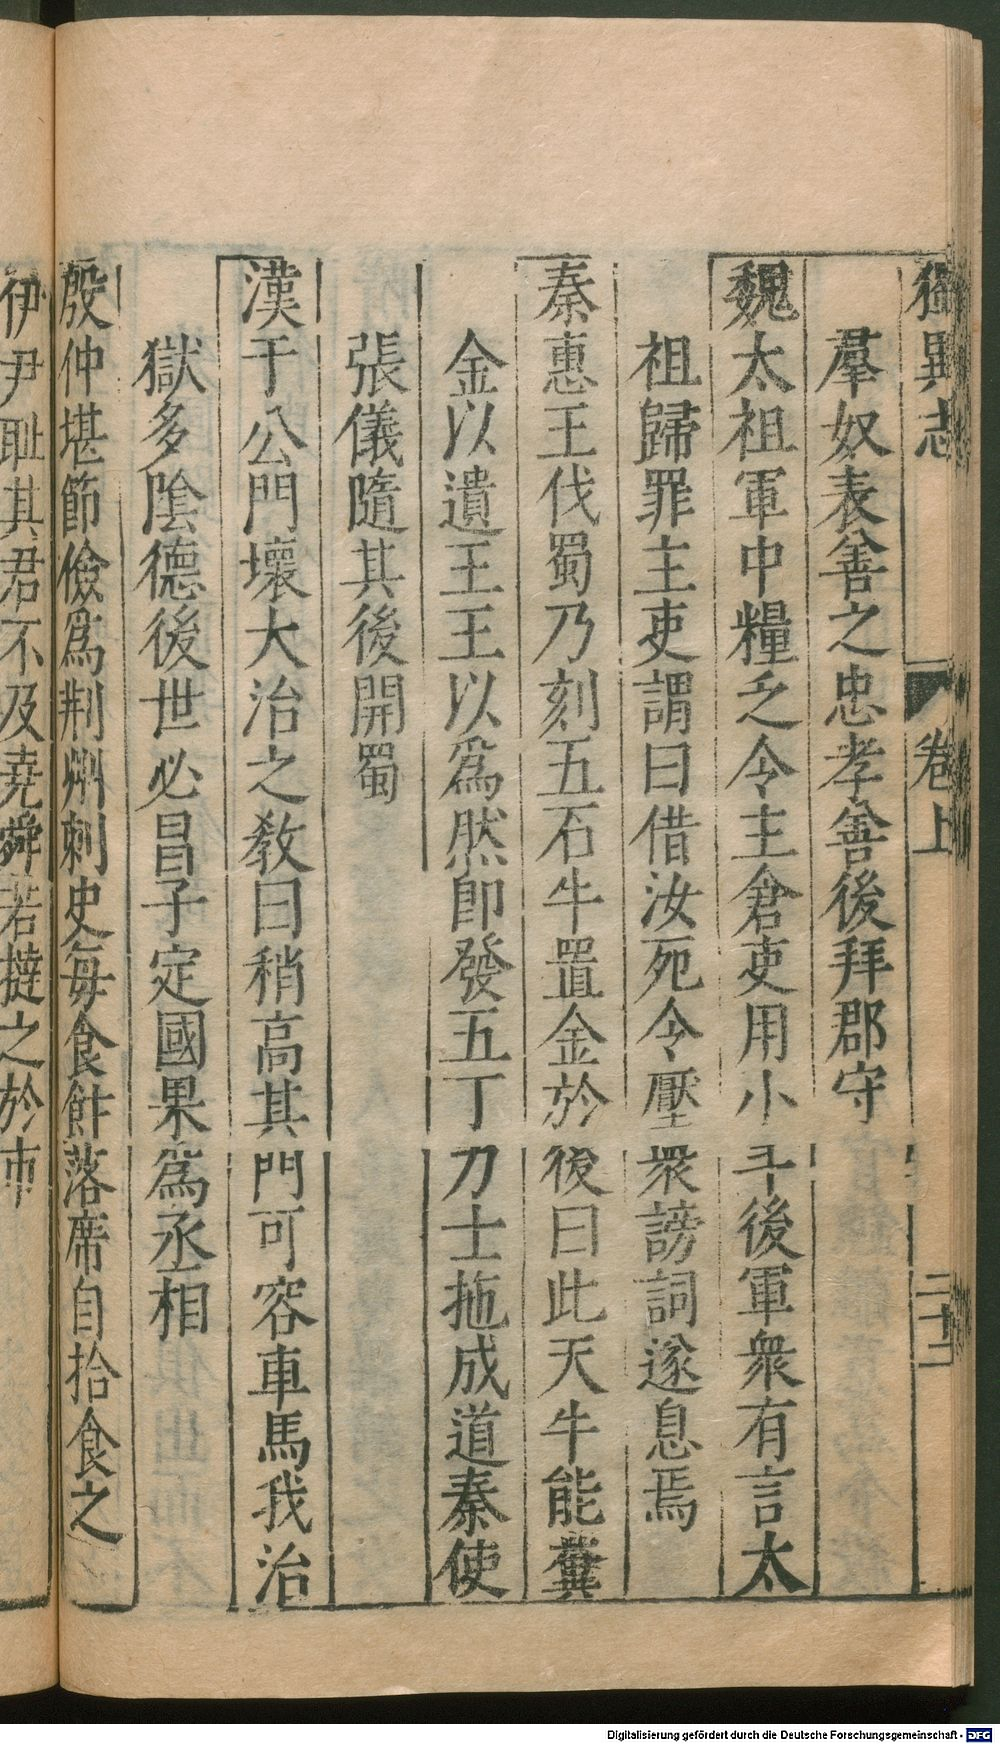 獨異志 卷上 二十二
羣奴表善之忠孝善後拜郡守
魏太祖軍中糧乏令主倉吏用小斗後軍衆有言太
祖歸罪主吏謂曰借汝死令壓衆謗詞遂息焉
秦惠王伐蜀乃刻五石牛置金於後曰此天牛能糞
金以遺王王以爲然即發五丁力士拖成道秦使
張儀隨其後開蜀
漢于公門壞大治之敎曰稍高其門可容車馬我治
獄多陰德後世必昌子定國果爲丞相
殷仲堪節儉爲荆州刺史每食飰落席自拾食之
伊尹耻其君不及堯舜若撻之於市
Digitalisierung gefördert durch die Deutsche Forschungsgemeinschaft - DFG